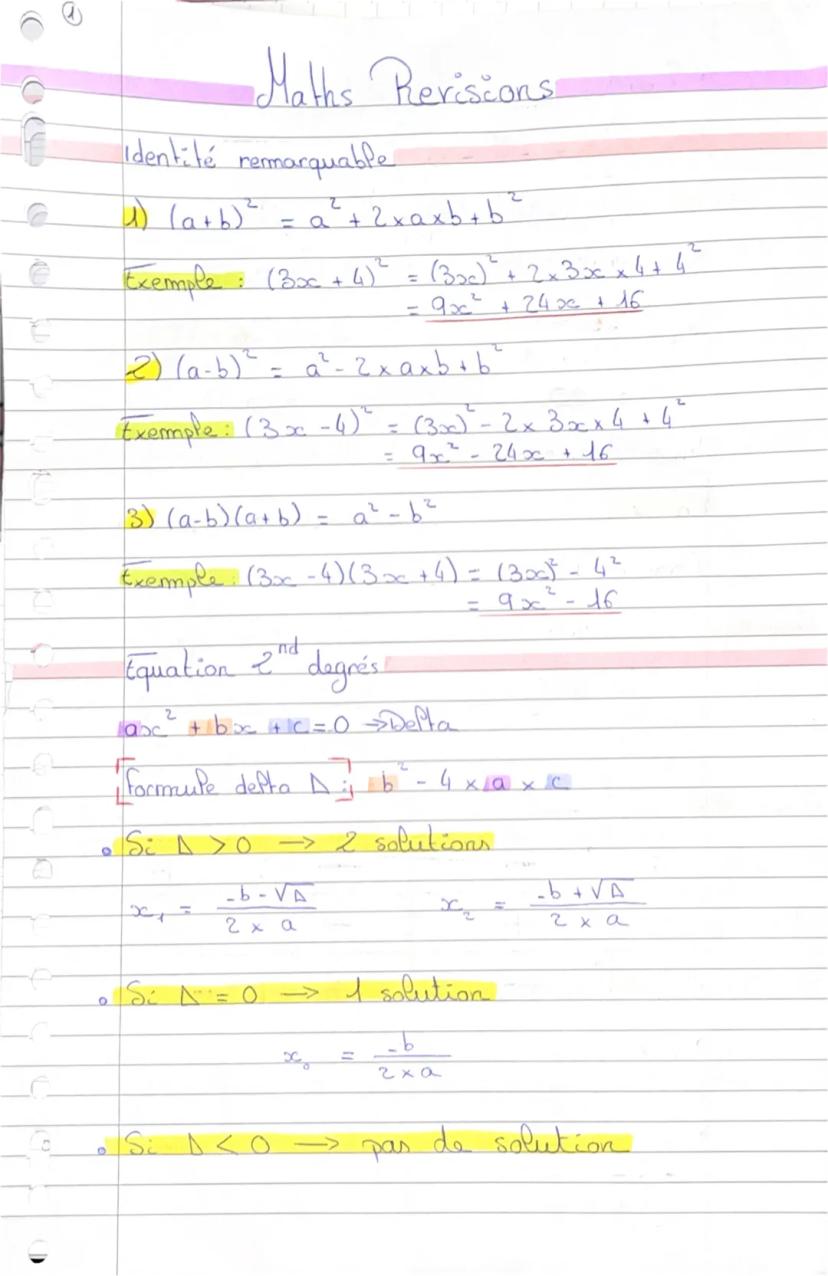 1
Maths Revisions
Identité remarquable
1) (a+b)² = a² + 2×a×b + b²
Exemple : (3x + 4)² = (3x)² + 2×3x×4 + 4²
= 9x² + 24x + 16
2) (a-b)² = a² - 2×a×b + b²
Exemple : (3x - 4)² = (3x)² - 2×3x×4 + 4²
= 9x² - 24x + 16
3) (a-b)(a+b) = a² - b²
Exemple : (3x - 4)(3x + 4) = (3x)² - 4²
= 9x² - 16
Equation 2nd degrés
ax² + bx + c = 0 → Delta
formule delta Δ : b² - 4 × a × c
• Si Δ > 0 → 2 solutions
x₁ = (-b - √Δ) / (2 × a) x₂ = (-b + √Δ) / (2 × a)
• Si Δ = 0 → 1 solution
x₀ = -b / (2 × a)
• Si Δ < 0 → pas de solution